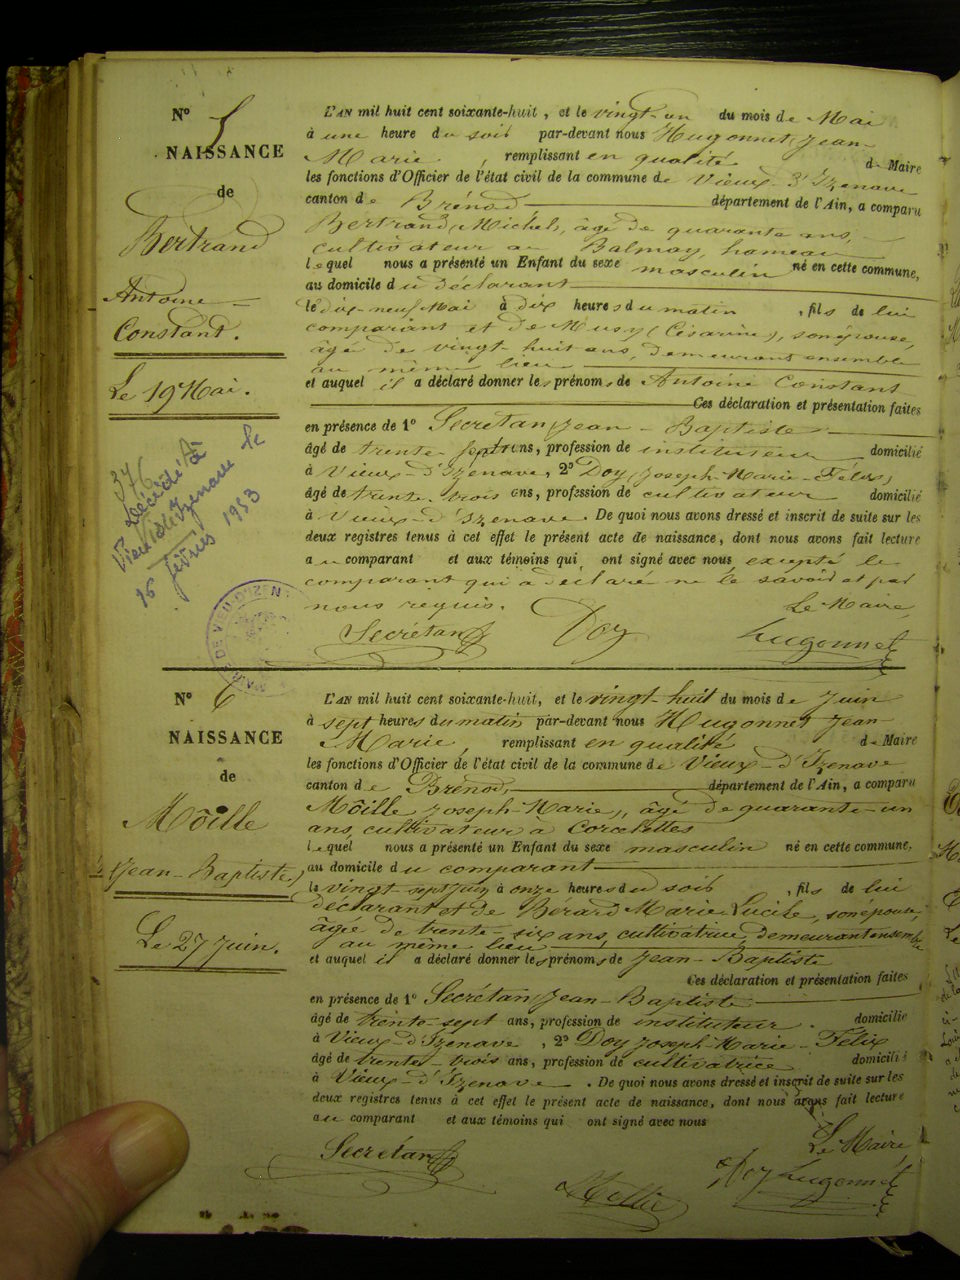 N° 5
NAISSANCE
de
Bertrand
Antoine
Constant.
Le 19 Mai.
376
Décédé à
Vieu d'Izenave le
16 février 1953
MAIRIE DE VIEU-D'IZEN
L'AN mil huit cent soixante-huit, et le vingt-un du mois de Mai
à une heure du soir par-devant nous Hugonnet, Jean-
Marie, remplissant en qualité de Maire
les fonctions d'Officier de l'état civil de la commune de Vieux-d'Izenave
canton de Brénod département de l'Ain, a comparu
Bertrand, Michel, âgé de quarante ans,
cultivateur au Balmay, hameau
lequel nous a présenté un Enfant du sexe masculin né en cette commune,
au domicile du déclarant
le dix-neuf Mai à dix heures du matin, fils de lui
comparant et de Musy (Césarine), son épouse,
âgé de vingt-huit ans, demeurant ensemble
au même lieu
et auquel il a déclaré donner les prénoms de Antoine Constant
Ces déclaration et présentation faites
en présence de 1° Secrétan, Jean-Baptiste
âgé de trente-sept ans, profession de instituteur domicilié
à Vieux-d'Izenave, 2° Doy, Joseph-Marie-Félix,
âgé de trente-trois ans, profession de cultivateur domicilié
à Vieux-d'Izenave. De quoi nous avons dressé et inscrit de suite sur les
deux registres tenus à cet effet le présent acte de naissance, dont nous avons fait lecture
au comparant et aux témoins qui ont signé avec nous excepté le
comparant qui a déclaré ne le savoir et par
nous requis. Le Maire,
Secrétan Doy Hugonnet
N° 6
NAISSANCE
de
Môille
(Jean-Baptiste)
Le 27 Juin.
L'AN mil huit cent soixante-huit, et le vingt-huit du mois de Juin
à sept heures du matin par-devant nous Hugonnet Jean-
Marie, remplissant en qualité de Maire
les fonctions d'Officier de l'état civil de la commune de Vieux-d'Izenave
canton de Brénod, département de l'Ain, a comparu
Môille Joseph-Marie, âgé de quarante-un
ans, cultivateur à Corcelettes
lequel nous a présenté un Enfant du sexe masculin né en cette commune,
au domicile du comparant
le vingt-sept Juin à onze heures du soir, fils de lui
déclarant et de Bérard Marie Lucile, son épouse,
âgée de trente-six ans, cultivatrice, demeurant ensemble
au même lieu
et auquel il a déclaré donner les prénoms de Jean-Baptiste
Ces déclaration et présentation faites
en présence de 1° Secrétan, Jean-Baptiste
âgé de trente-sept ans, profession de instituteur. domicilié
à Vieux-d'Izenave, 2° Doy Joseph-Marie-Félix
âgé de trente-trois ans, profession de cultivatrice domicilié
à Vieux-d'Izenave. De quoi nous avons dressé et inscrit de suite sur les
deux registres tenus à cet effet le présent acte de naissance, dont nous avons fait lecture
au comparant et aux témoins qui ont signé avec nous
Le Maire,
Secrétan Doy Hugonnet